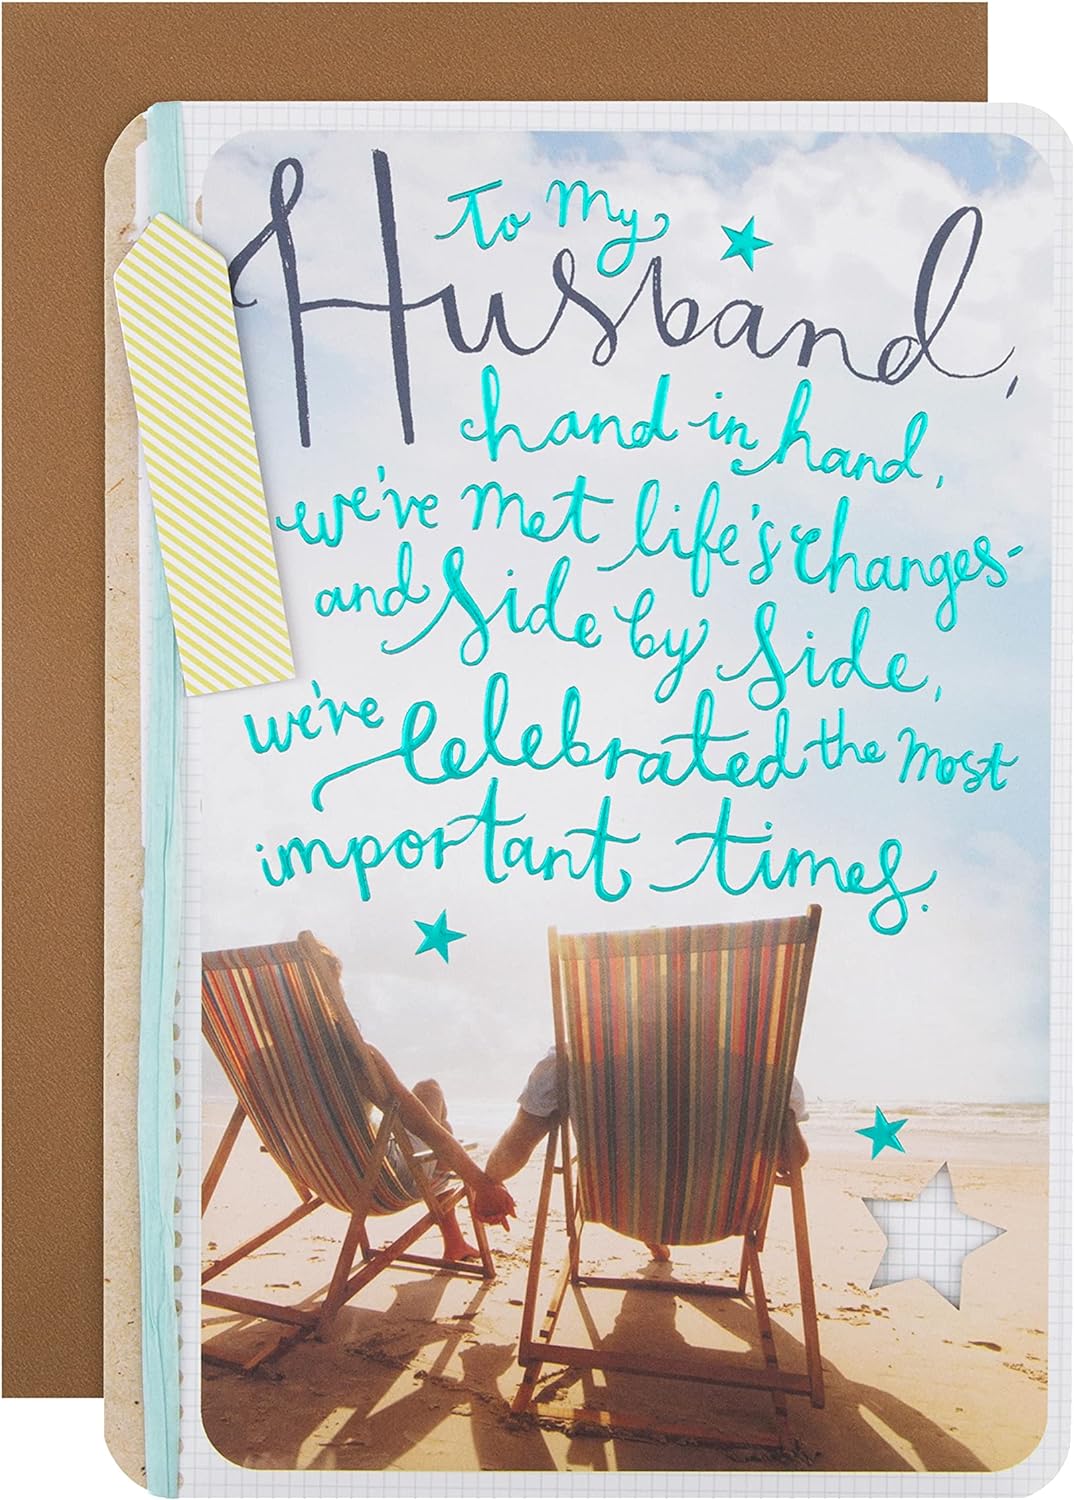 To My
Husband,
hand in hand,
we've met life's changes-
and side by side,
we've celebrated the most
important times.